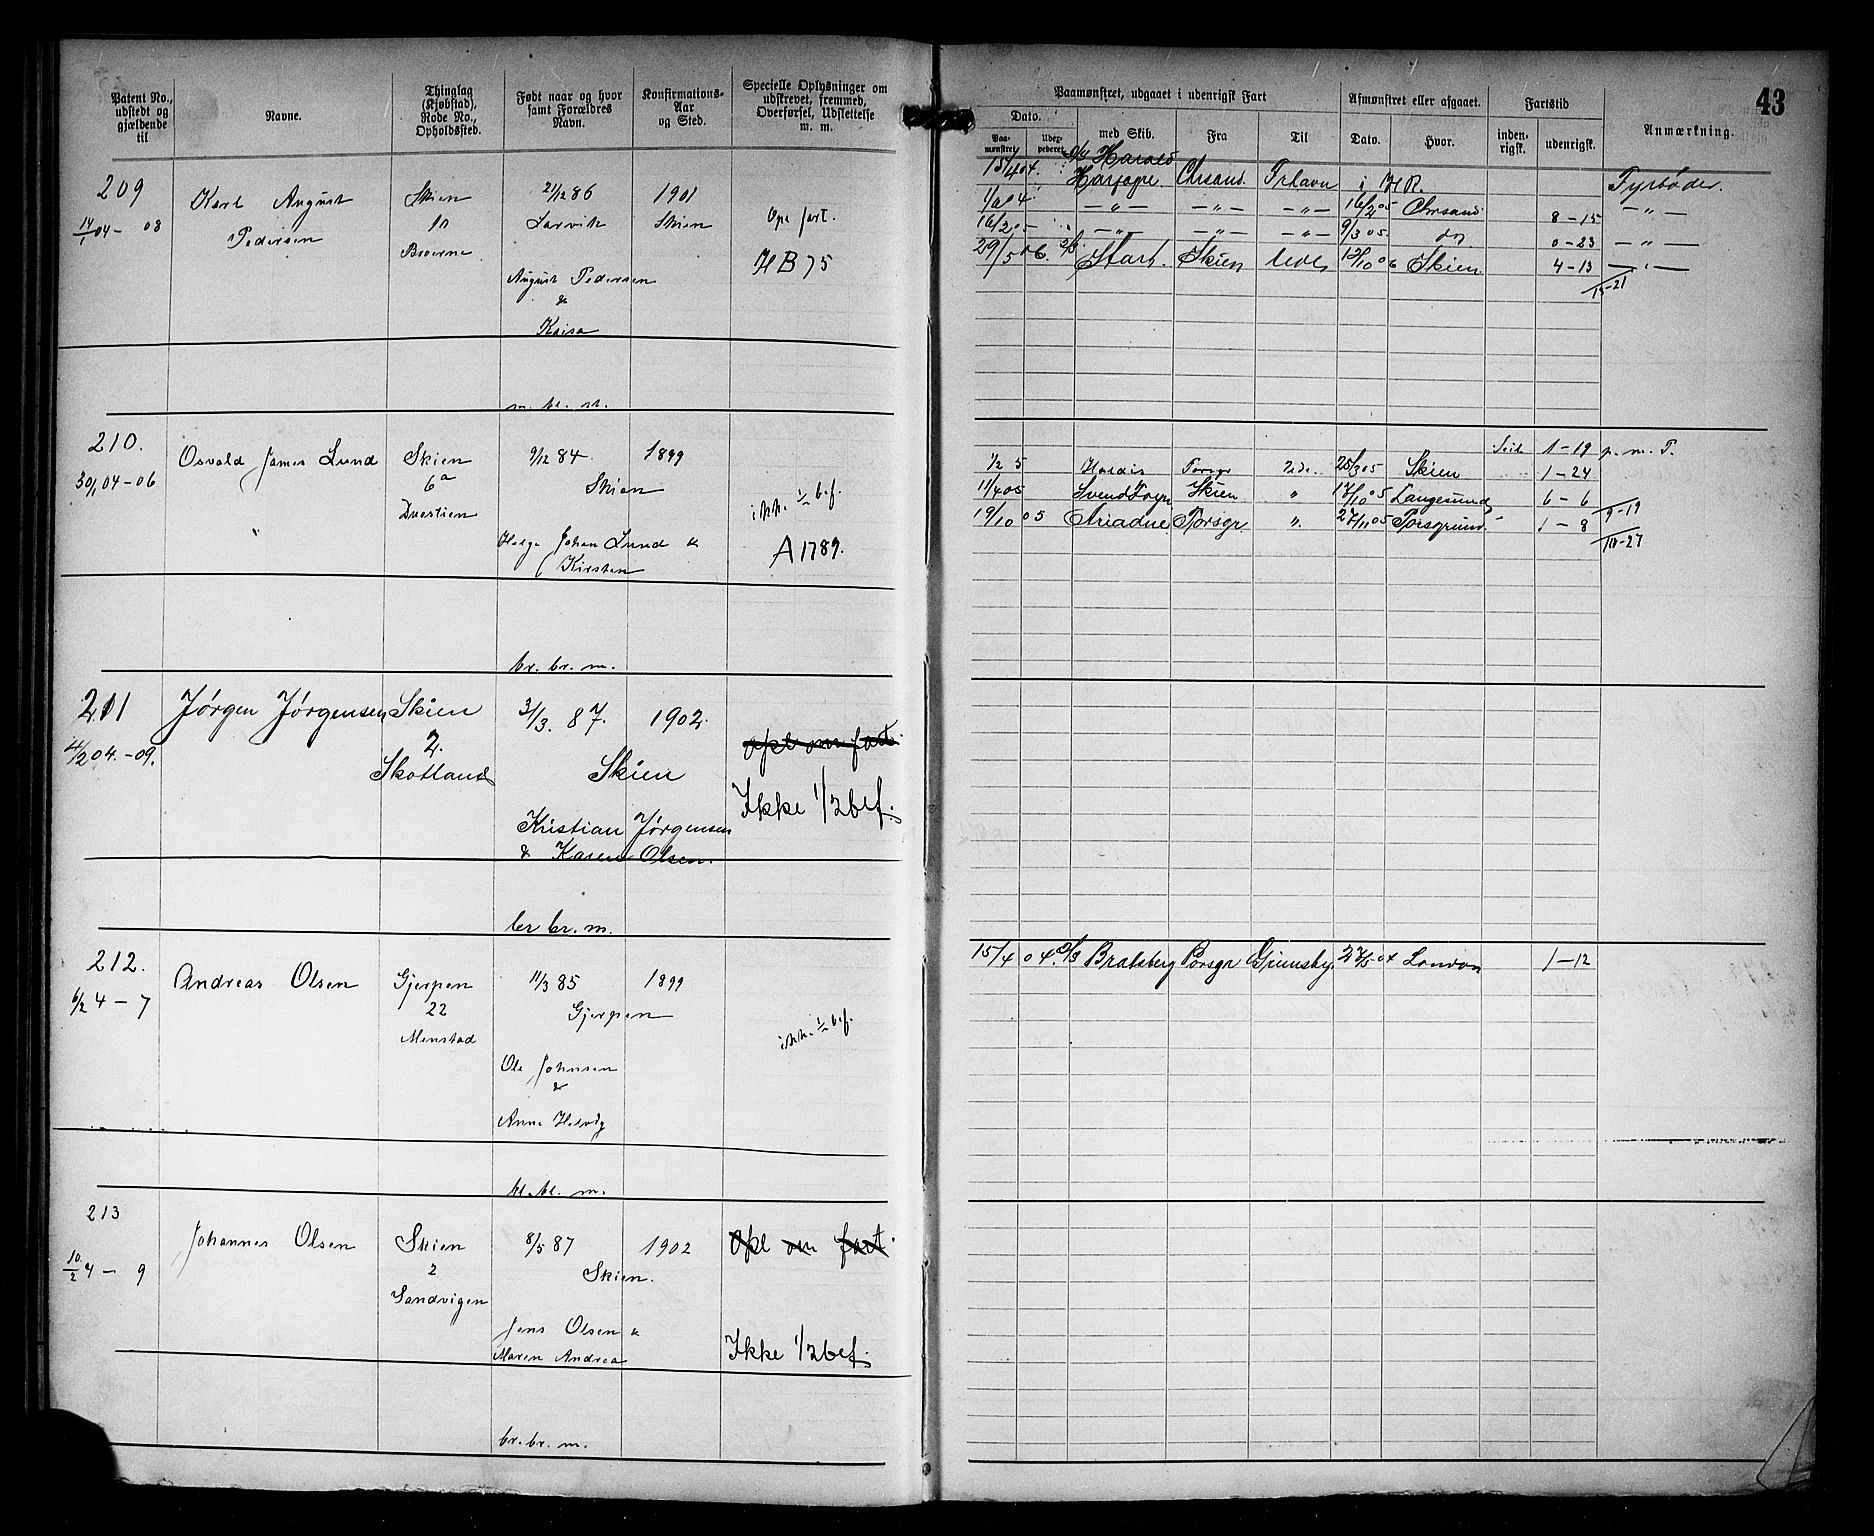 43
Patent No., udstedt og gjældende til
Navne.
Thinglag (Kjøbstad), Rode No., Opholdssted.
Født naar og hvor samt Forældres Navn.
Konfirmations-Aar og Sted.
Specielle Oplysninger om udskrevet, fremmed, Overførsel, Udslettelse m. m.
Paamønstret, udgaaet i udenrigsk Fart
Afmønstret eller afgaaet.
Fartstid
Anmærkning.
Dato.
med Skib.
Fra
Til
Dato.
Hvor.
inden-rigsk.
udenrigsk.
209
14/1 04 - 08
Karl August
Pedersen
Skien
10
Broerne
21/12 86
Larvik
August Pedersen
&
Kaisa
1901
Skien
Opl fart.
HB 75
m. bl. st.
15/4 04. Harald
Harfagre. Chrsand. Frhavn i H.R. Fyrbøder.
1/6 04. -"- -"- -"- 16/2 05 Chrsand 8-15 -"-
16/2 05 -"- -"- -"- 9/3 05. do 0-23 -"-
29/5 06. Start. Skien 12/10 06 Skien 4-13 -"-
210.
30/1 04-06
Osvald James Lund
Skien
6a
9/12 84
Skien
Helge Johan Lund &
Kirsten
1899
ikk. 1/2 bef.
A 1789.
br. br. m.
1-19 p. m. T.
1/2 5 Porsgr 25/3 05 Skien 1-24
11/4 05 Svend Foyn Skien " 17/10 05 Langesund 6-6
9-19
19/10 05 Ariadne Porsgr. " 27/11 05 Porsgrund 1-8
211
4/2 04.-09.
Jørgen Jørgensen
Skien
2.
Skotland
3/3. 87.
Skien
Kristian Jørgensen
& Karen Olsen.
1902.
opl om fart.
Ikke 1/2 bef.
br br. m.
212.
6/2 4 - 7
Andreas Olsen
Gjerpen
22
Menstad
11/3 85
Gjerpen
Ole Johnsen
&
Anne Helvig
1899
ikk. 1/2 bef.
bl. bl. m.
15/4 04. Bratsberg Porsgr Grimsby. London 1-12
213
10/2 4 - 9
Johannes Olsen
Skien
2
Sandvigen
8/5 87
Skien.
Jens Olsen &
Maren Andrea
1902
Opl om fart.
Ikke 1/2 bef.
br. br. m.